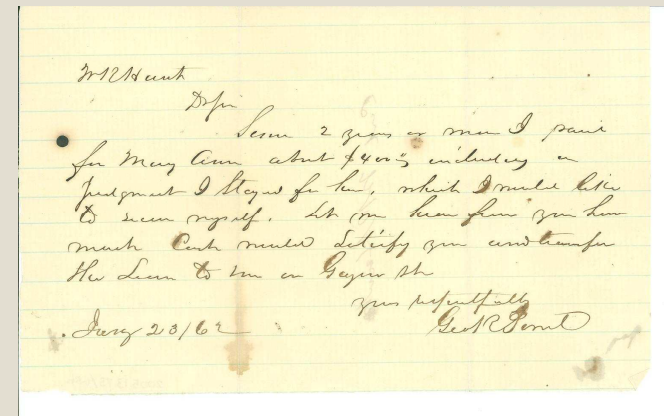 W R Hunt
D Sir
Some 2 years or more I paid
for Mary Ann about $400 including a
judgment I Stayed for her, which I would like
to secure myself. Let me hear from you how
much Cash would Satisfy you and transfer
the Lien to me on
yours respectfully
Jany 23/62 Geo R